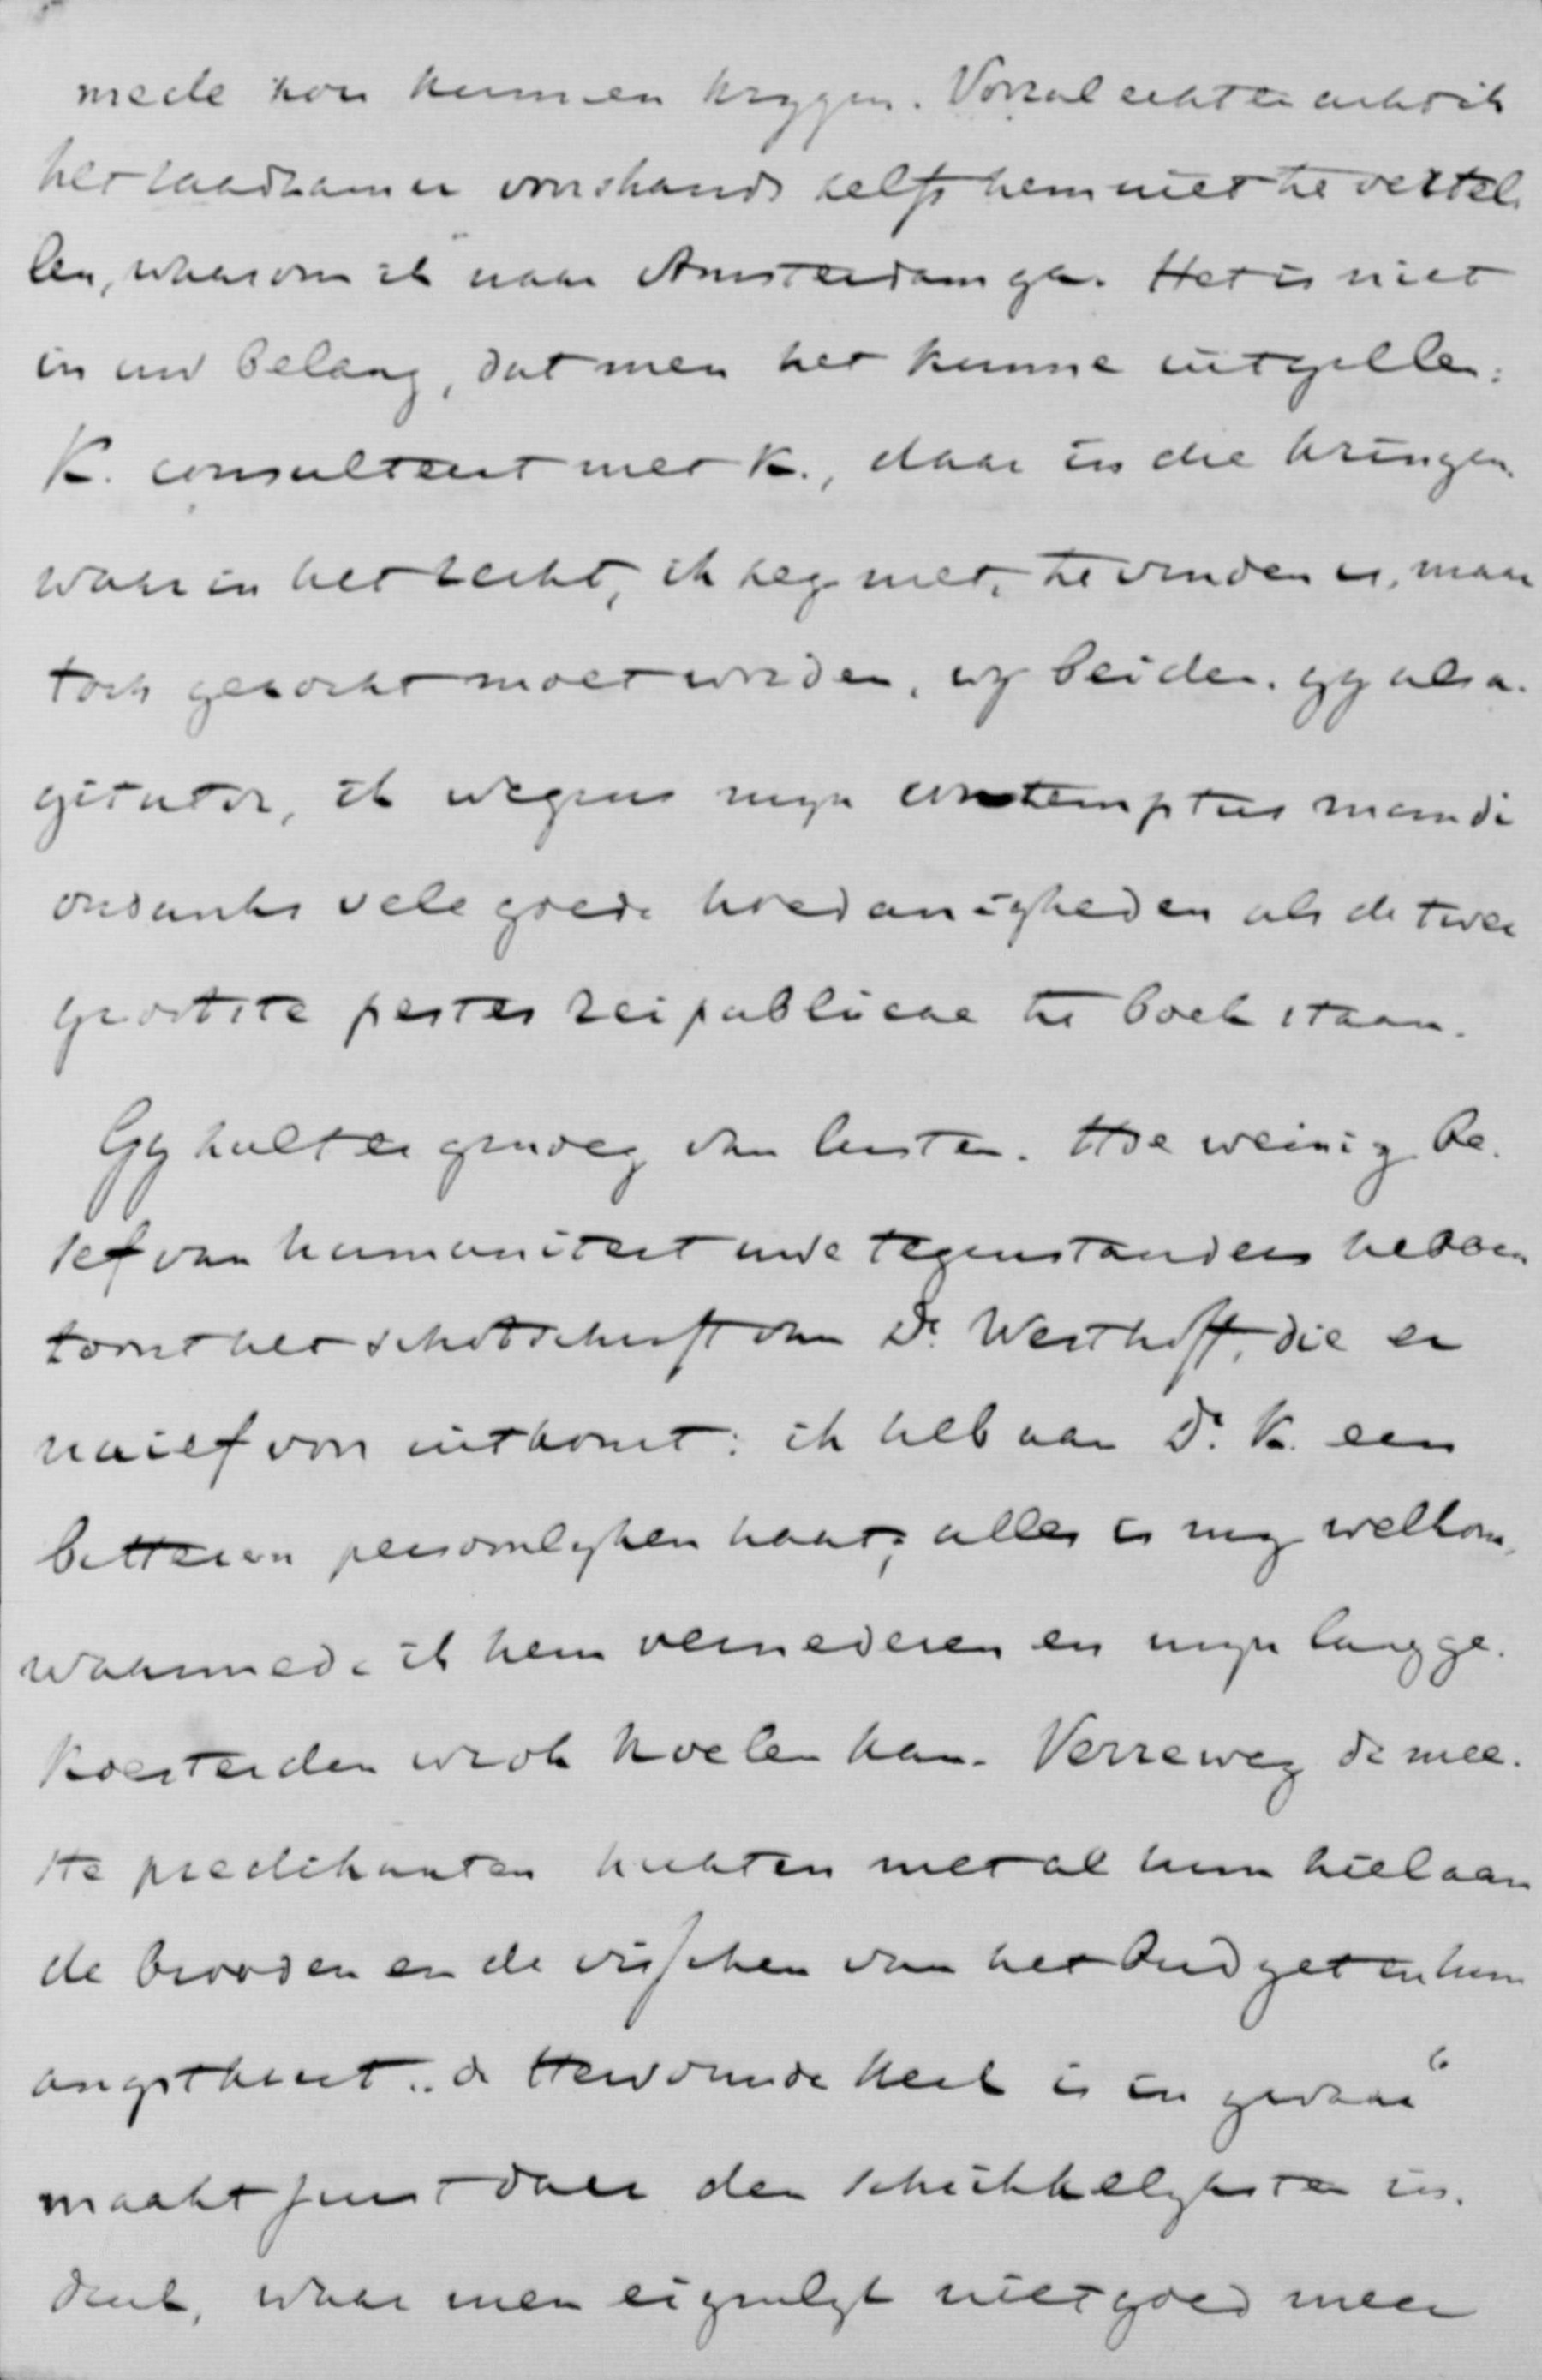 mede zou kunnen krygen. Vooral echter acht ik
het raadzamer voorshands zelfs hem niet te vertel-
len, waarom ik naar Amsterdam ga. Het is niet
in uw belang, dat men het kunne uitgillen:
K. consulteert met K., daar in die kringen
waar in het recht, ik zeg niet, te vinden is, maar
toch gezocht moet worden, wy beiden, gy als a-
gitator, ik wegens myn contemptus mundi
ondanks vele goede hoedanigheden als de twee
grootste pestes reipublicae te boek staan.
Gy hadt er genoeg van lusten. Hoe weinig be-
sef van humaniteit uwe tegenstanders hebben
toont het schotschrift van Dr. Westhoff, die er
naief voor uitkomt: ik heb aan Dr. K. een
bitteren persoonlyken haat; alles is my welkom,
waarmede ik hem vernederen en myn lang ge-
koesterden wrok koelen kan. Verreweg de mee-
ste predikanten hechten met al hun ziel aan
de brooden en de visschen van het budget en hun
angstkreet „de Hervormde Kerk is in gevaar“
maakt juist daar den schrikkelyksten in-
druk, waar men eigenlyk niet goed meer